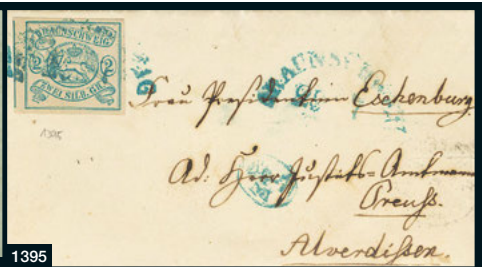 BRAUNSCHWEIG
2 2
ZWEI SILB. GR.
BRAUNSCHWEIG
Frau Presidentin Eschenburg
1395
Ad: Herr Justits=Amtmann
Preuss.
Alverdissen
1395